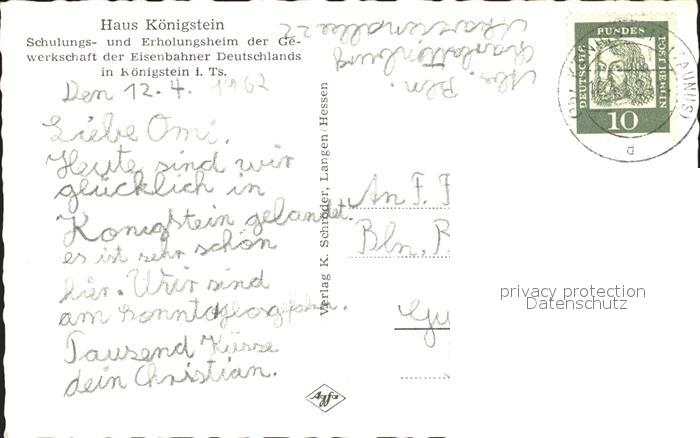 Haus Königstein
Schulungs- und Erholungsheim der Ge-
werkschaft der Eisenbahner Deutschlands
in Königstein i. Ts.
Den 12.4. 1962
Liebe Omi,
Heute sind wir
glücklich in
Königstein gelandet.
es ist sehr schön
hier. Wir sind
am Sonntag losgefahren.
Tausend Küsse
dein Christian.
Abs. Bln.
Charlottenburg
22
Verlag K. Schröder, Langen/Hessen
An F. F
Bln.
DEUTSCHE BUNDESPOST BERLIN
10
TAUNUS)
a
privacy protection
Datenschutz
Agfa